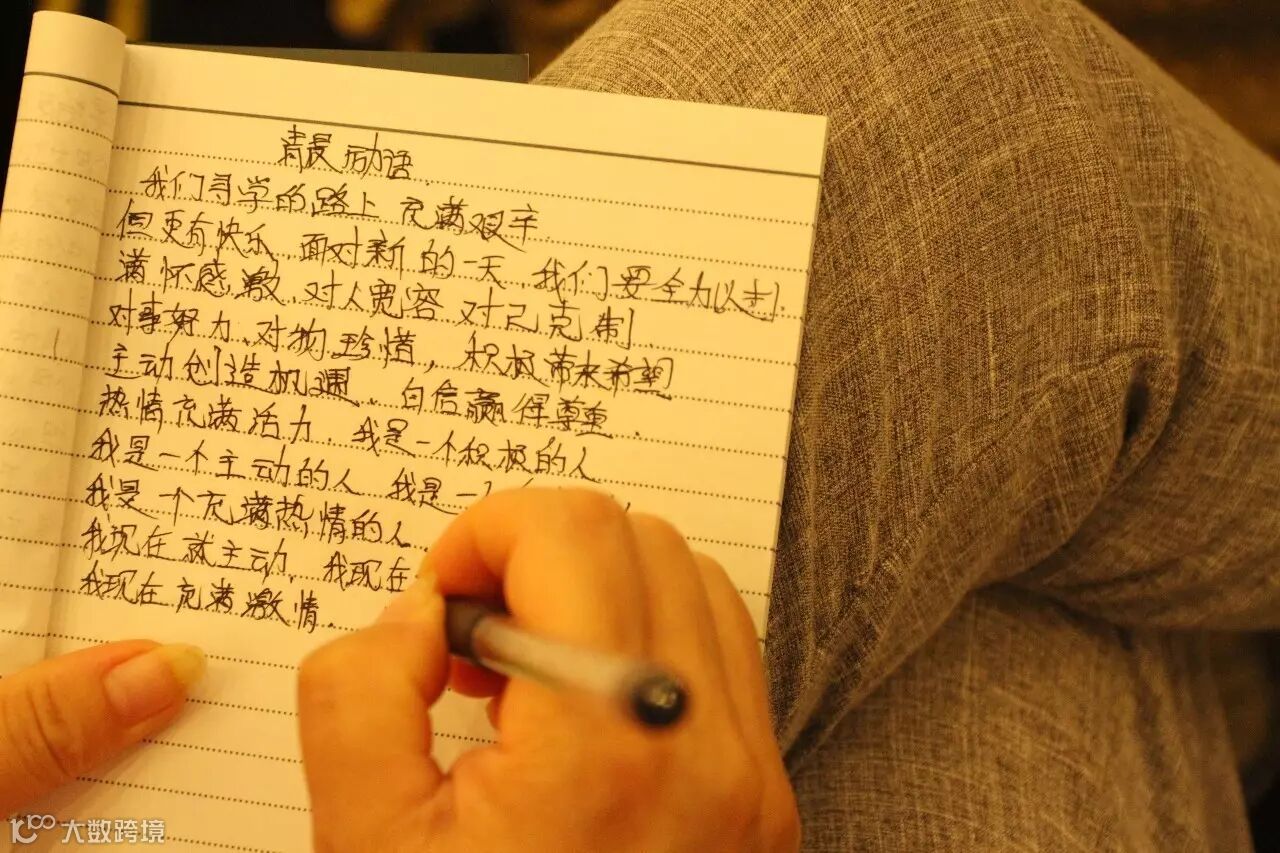 清晨励语
我们寻学的路上 充满艰辛
但更有快乐 面对新的一天 我们要全力以赴
满怀感激 对人宽容 对己克制
对事努力 对物珍惜，积极带来希望
主动创造机遇 自信赢得尊重
热情充满活力 我是一个积极的人
我是一个主动的人 我是一
我是一个充满热情的人
我现在就主动 我现在
我现在充满激情
大数跨境